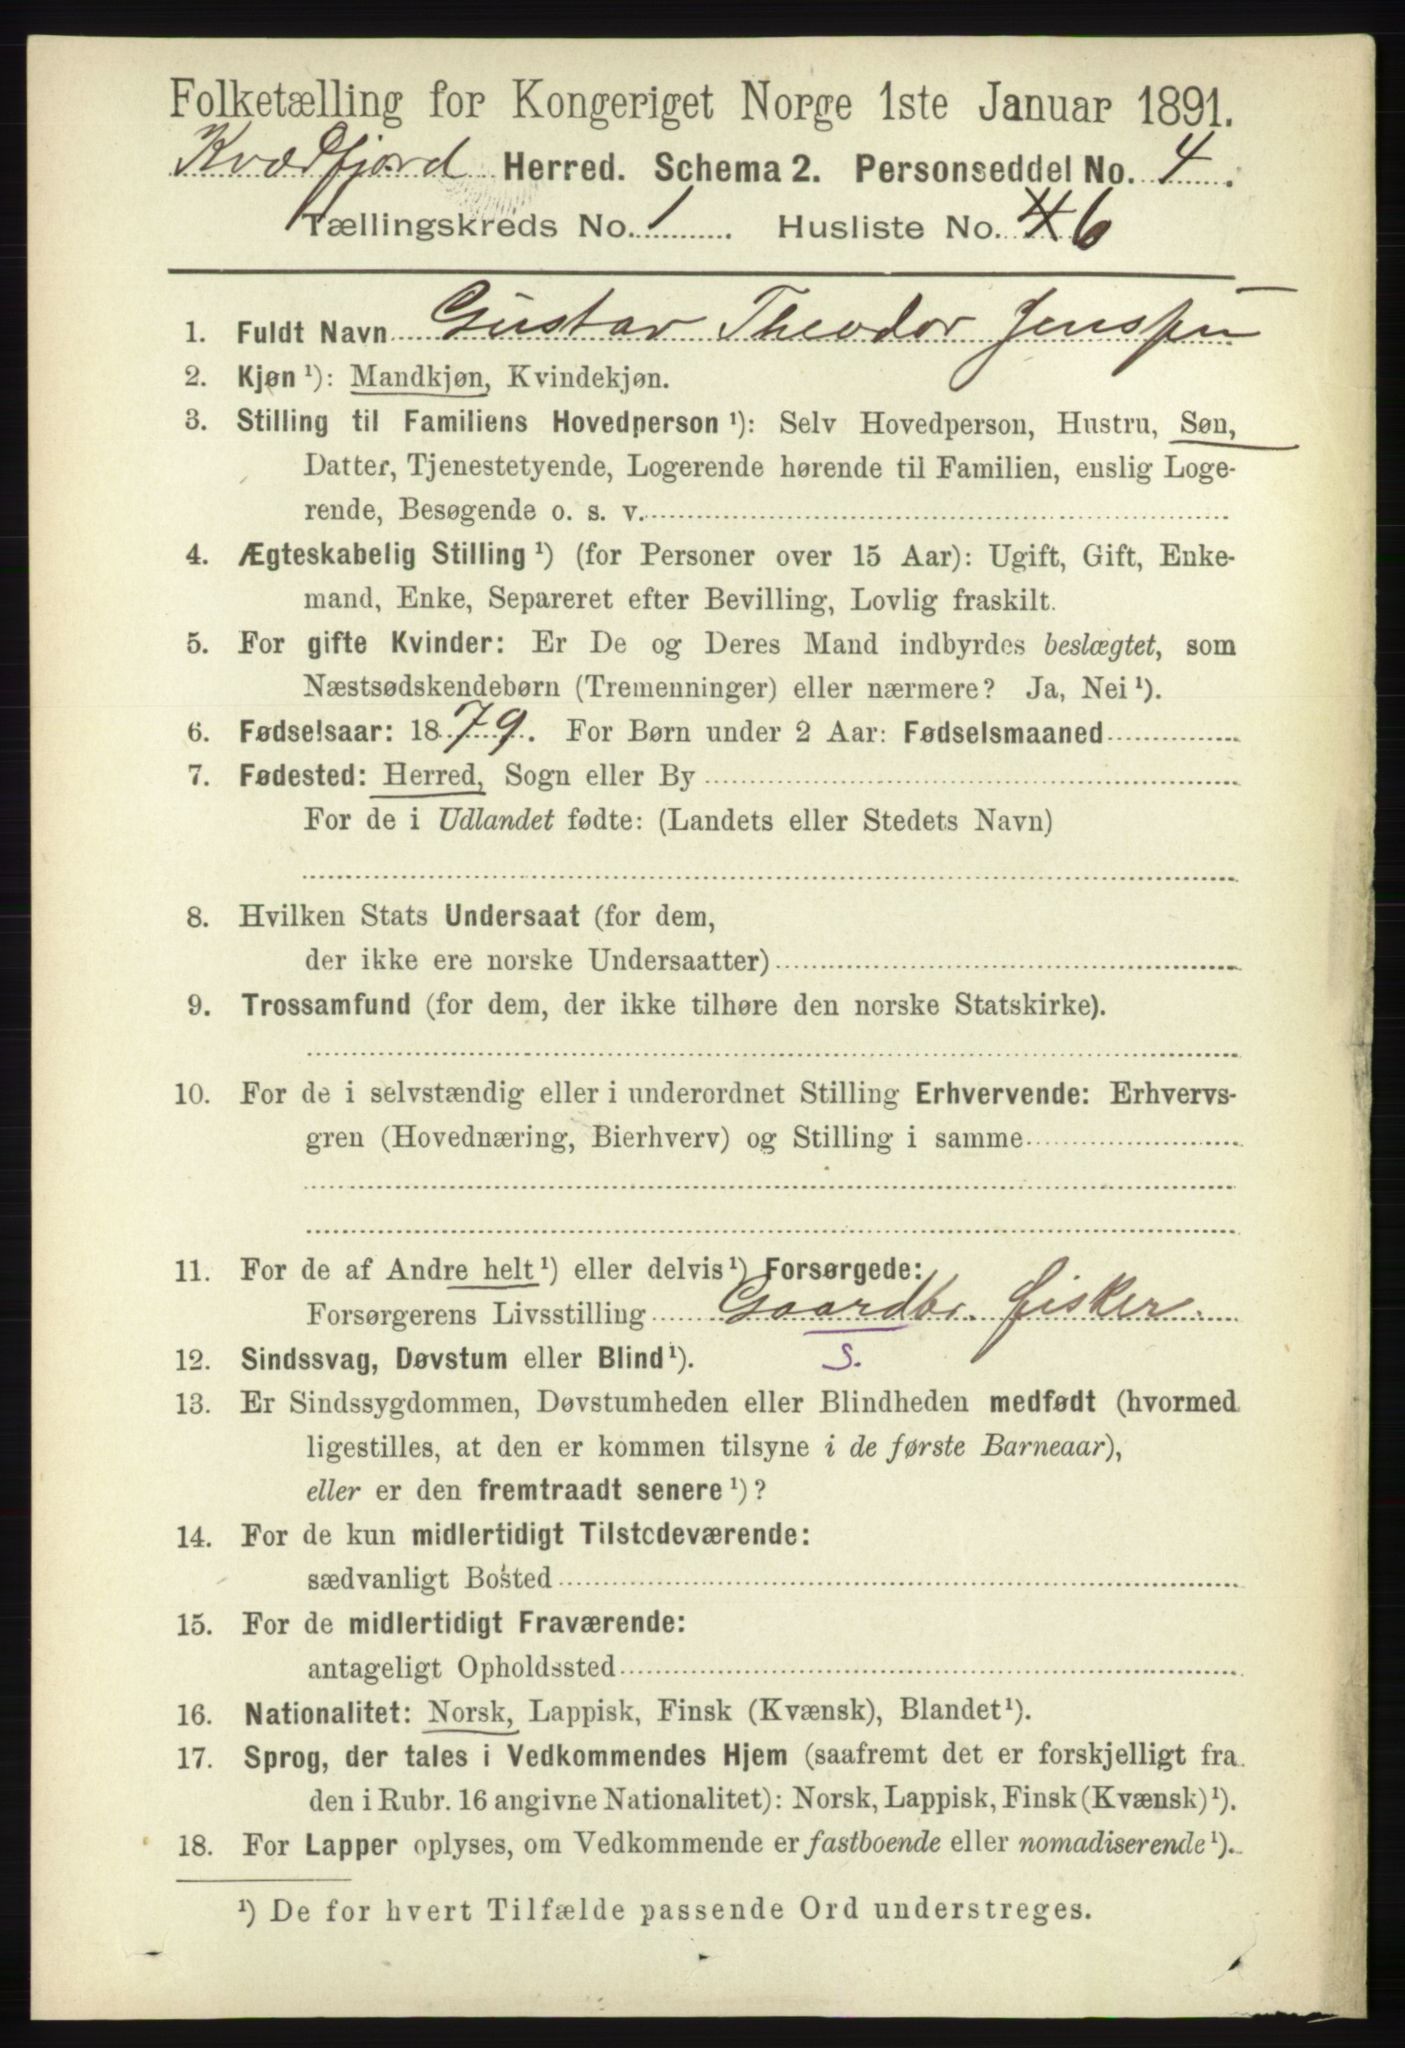 Folketælling for Kongeriget Norge 1ste Januar 1891.
Kvædfjord Herred. Schema 2. Personseddel No. 4.
Tællingskreds No. 1. Husliste No. 4 6
1. Fuldt Navn Gustav Theodor Jensen
2. Kjøn ¹): Mandkjøn, Kvindekjøn.
3. Stilling til Familiens Hovedperson ¹): Selv Hovedperson, Hustru, Søn,
Datter, Tjenestetyende, Logerende hørende til Familien, enslig Loge-
rende, Besøgende o. s. v.
4. Ægteskabelig Stilling ¹) (for Personer over 15 Aar): Ugift, Gift, Enke-
mand, Enke, Separeret efter Bevilling, Lovlig fraskilt.
5. For gifte Kvinder: Er De og Deres Mand indbyrdes beslægtet, som
Næstsødskendebørn (Tremenninger) eller nærmere? Ja, Nei ¹).
6. Fødselsaar: 1879. For Børn under 2 Aar: Fødselsmaaned
7. Fødested: Herred, Sogn eller By
For de i Udlandet fødte: (Landets eller Stedets Navn)
8. Hvilken Stats Undersaat (for dem,
der ikke ere norske Undersaatter)
9. Trossamfund (for dem, der ikke tilhøre den norske Statskirke).
10. For de i selvstændig eller i underordnet Stilling Erhvervende: Erhvervs-
gren (Hovednæring, Bierhverv) og Stilling i samme
11. For de af Andre helt ¹) eller delvis ¹) Forsørgede:
Forsørgerens Livsstilling Gaardbr. fisker.
12. Sindssvag, Døvstum eller Blind ¹). S.
13. Er Sindssygdommen, Døvstumheden eller Blindheden medfødt (hvormed
ligestilles, at den er kommen tilsyne i de første Barneaar),
eller er den fremtraadt senere ¹)?
14. For de kun midlertidigt Tilstedeværende:
sædvanligt Bosted
15. For de midlertidigt Fraværende:
antageligt Opholdssted
16. Nationalitet: Norsk, Lappisk, Finsk (Kvænsk), Blandet ¹).
17. Sprog, der tales i Vedkommendes Hjem (saafremt det er forskjelligt fra
den i Rubr. 16 angivne Nationalitet): Norsk, Lappisk, Finsk (Kvænsk) ¹).
18. For Lapper oplyses, om Vedkommende er fastboende eller nomadiserende ¹).
¹) De for hvert Tilfælde passende Ord understreges.